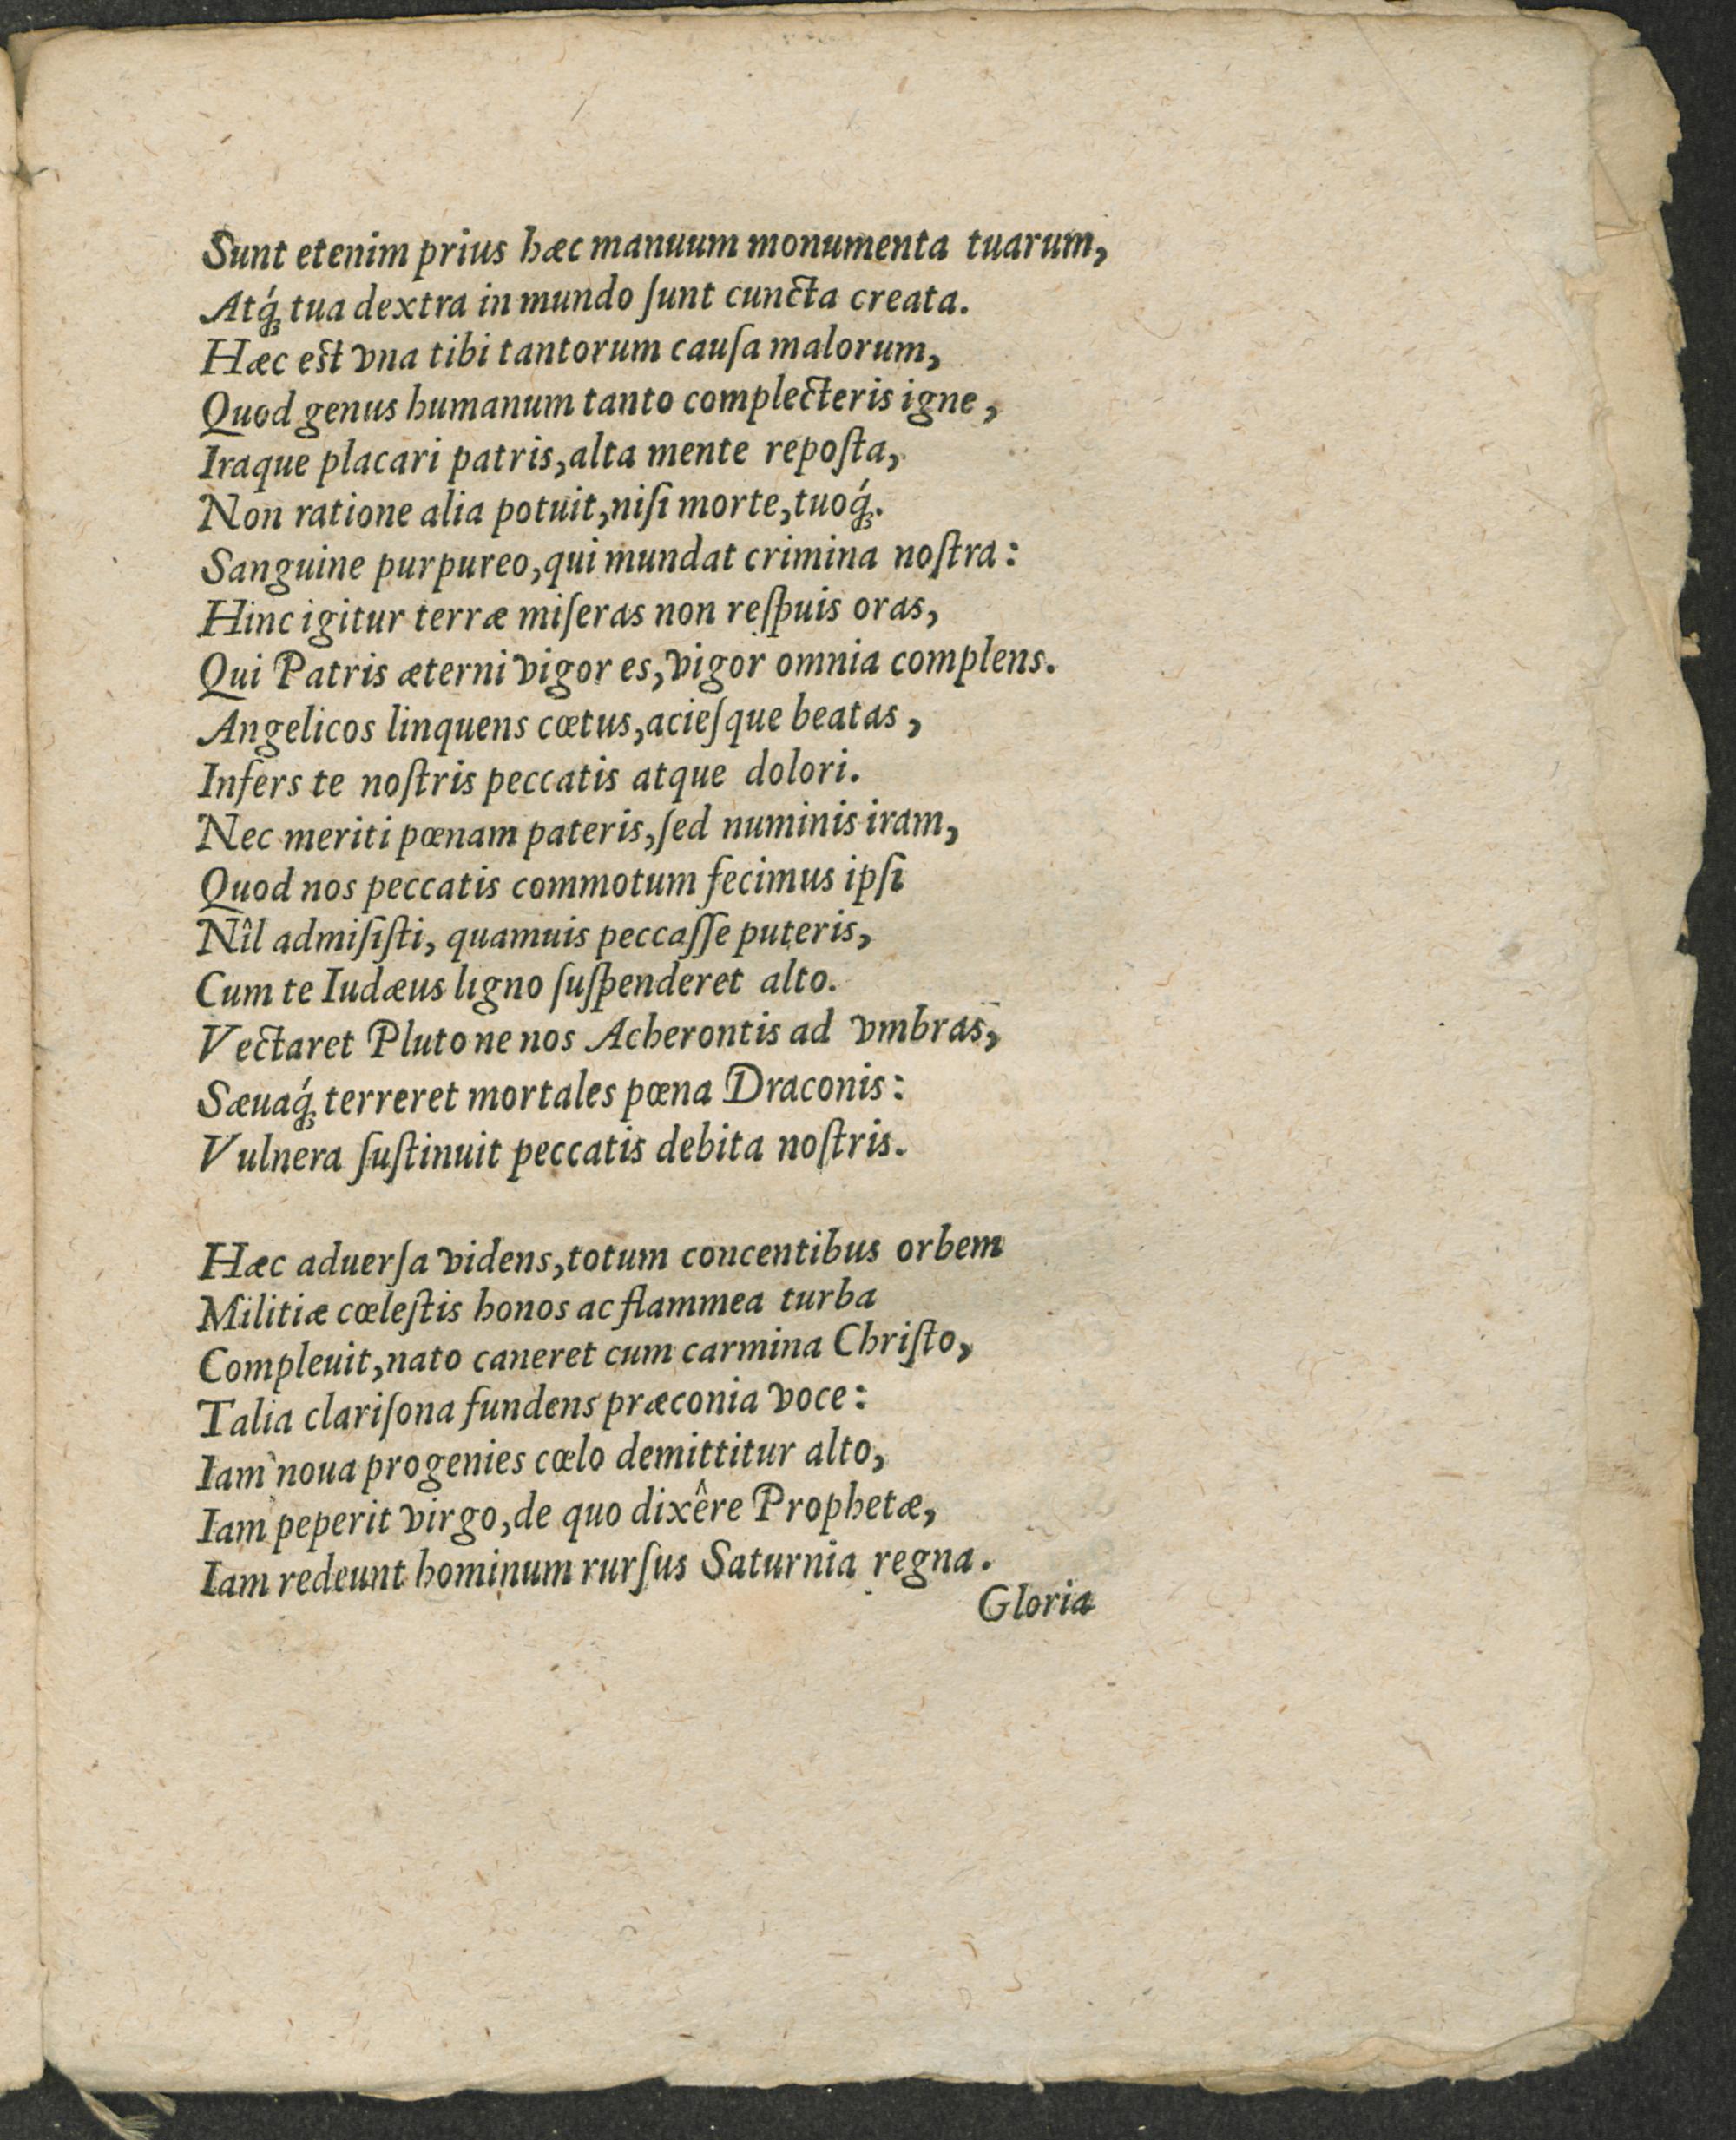 Sunt etenim prius hæc manuum monumenta tuarum,
Atq́ꝫ tua dextra in mundo ſunt cuncta creata.
Hæc est vna tibi tantorum cauſa malorum,
Quod genus humanum tanto complecteris igne,
Iraque placari patris, alta mente repoſta,
Non ratione alia potuit, niſi morte, tuoq́ꝫ.
Sanguine purpureo, qui mundat crimina noſtra:
Hinc igitur terræ miſeras non reſpuis oras,
Qui Patris æterni vigor es, vigor omnia complens.
Angelicos linquens cœtus, acieſque beatas,
Infers te noſtris peccatis atque dolori.
Nec meriti pœnam pateris, ſed numinis iram,
Quod nos peccatis commotum fecimus ipſi
Nîl admiſiſti, quamuis peccaſſe puteris,
Cum te Iudæus ligno ſuſpenderet alto.
Vectaret Pluto ne nos Acherontis ad vmbras,
Sæuaq́ꝫ terreret mortales pœna Draconis:
Vulnera ſuſtinuit peccatis debita noſtris.

Hæc aduerſa videns, totum concentibus orbem
Militiæ cœleſtis honos ac flammea turba
Compleuit, nato caneret cum carmina Chriſto,
Talia clariſona fundens præconia voce:
Iam noua progenies cœlo demittitur alto,
Iam peperit virgo, de quo dixêre Prophetæ,
Iam redeunt hominum rurſus Saturnia regna.
Gloria